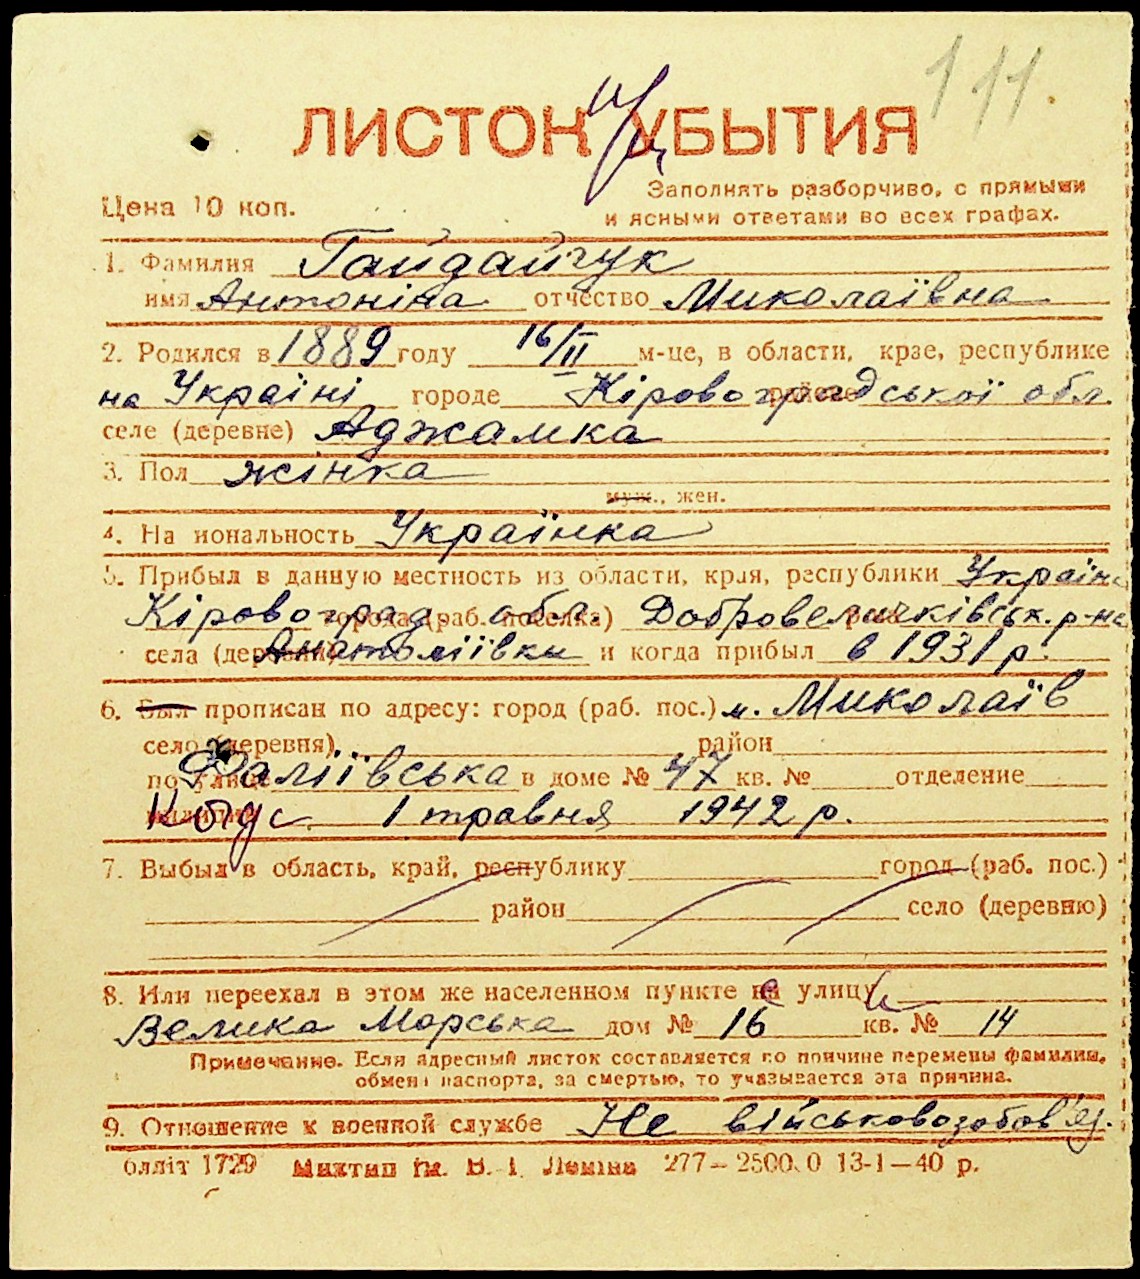 111.
ЛИСТОК УБЫТИЯ
Цена 10 коп.
Заполнять разборчиво, с прямыми
и ясными ответами во всех графах.
1. Фамилия Гайдайчук
имя Антоніна отчество Миколаївна
2. Родился в 1889 году 16/II м-це, в области, крае, республике
на Україні городе Кіровоградської обл.
селе (деревне) Аджамка
3. Пол жінка
муж., жен.
4. На иональность Українка
5. Прибыл в данную местность из области, края, республики Україна
Кіровоград. обл. города (раб. поселка) Добровеличківськ. р-на
села (деревни) Анатоліївки и когда прибыл в 1931 р.
6. Был прописан по адресу: город (раб. пос.) м. Миколаїв
село (деревня) район
по улице Фаліївська в доме № 47 кв. № отделение
милиции 1 травня 1942 р.
7. Выбыл в область, край, республику город (раб. пос.)
район село (деревню)
8. Или переехал в этом же населенном пункте на улицу
Велика Морська дом № 16 кв. № 14
Примечание. Если адресный листок составляется по причине перемены фамилии,
обмена паспорта, за смертью, то указывается эта причина.
9. Отношение к военной службе Не військовозобов'яз.
блліт 1729 Миктип ім. В. І. Леніна 277—2500.0 13-1—40 р.